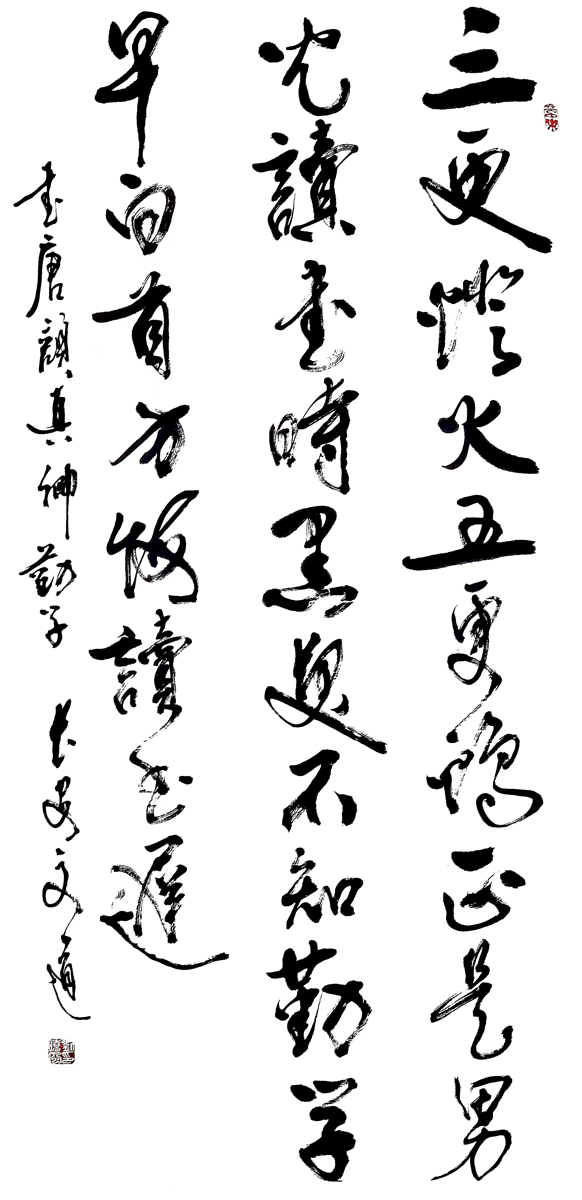 三更燈火五更鷄正是男
兒讀書時黑髮不知勤学
早白首方悔讀书遲
書唐顏真卿勸学 长安文道